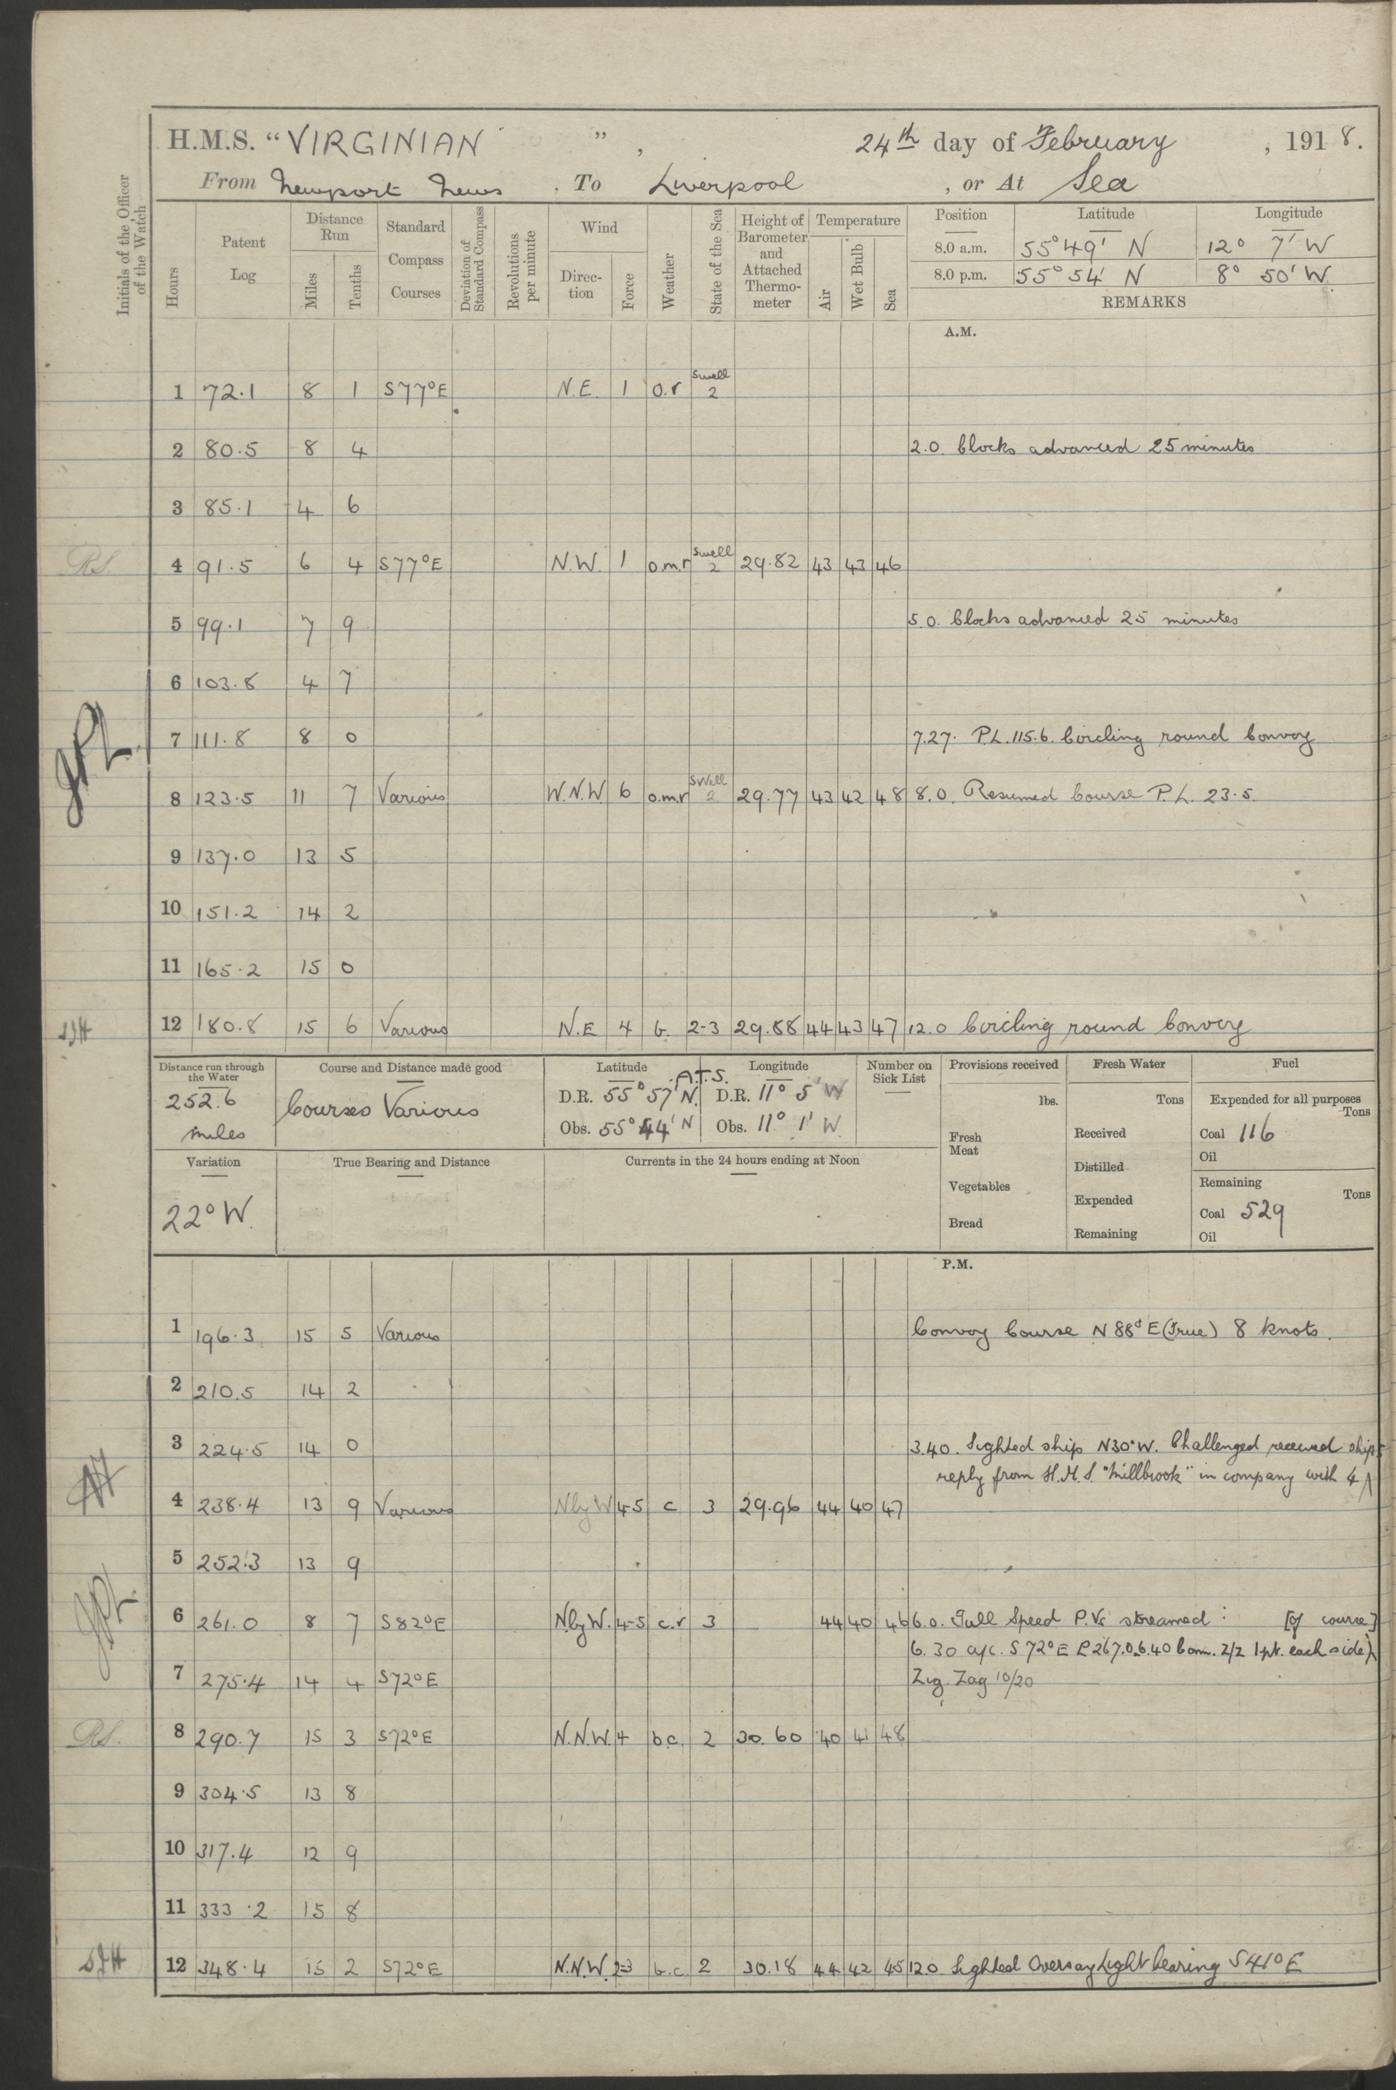 H.M.S. "VIRGINIAN", 24th day of February, 1918.
From Newport News, To Liverpool, or At Sea
Initials of the Officer of the Watch
Hours
Patent Log
Distance Run
Miles
Tenths
Standard Compass Courses
Deviation of Standard Compass
Revolutions per minute
Wind
Direction
Force
Weather
State of the Sea
Height of Barometer and Attached Thermometer
Temperature
Air
Wet Bulb
Sea
Position Latitude Longitude
8.0 a.m. 55° 49' N 12° 7' W
8.0 p.m. 55° 54' N 8° 50' W.
REMARKS
A.M.
1 72.1 8 1 S77°E N.E. 1 o.r Swell 2
2 80.5 8 4 2.0 Clocks advanced 25 minutes
3 85.1 4 6
R.S. 4 91.5 6 4 S77°E N.W. 1 o.m.r Swell 2 29.82 43 43 46
5 99.1 7 9 5.0. Clocks advanced 25 minutes
6 103.8 4 7
7 111.8 8 0 7.27. P.L. 115.6. Circling round Convoy
8 123.5 11 7 Various W.N.W 6 o.m.r Swell 2 29.77 43 42 48 8.0. Resumed Course P.L. 23.5
9 137.0 13 5
10 151.2 14 2
11 165.2 15 0
12 180.8 15 6 Various N.E 4 b. 2-3 29.88 44 43 47 12.0 Circling round Convoy
Distance run through the Water
252.6 miles
Course and Distance made good
Courses Various
Latitude A.T.S. Longitude
D.R. 55° 57' N. D.R. 11° 5' W
Obs. 55° 44' N Obs. 11° 1' W.
Number on Sick List
Provisions received
lbs.
Fresh Meat
Vegetables
Bread
Fresh Water
Tons
Received
Distilled
Expended
Remaining
Fuel
Expended for all purposes
Tons
Coal 116
Oil
Remaining
Tons
Coal 529
Oil
Variation
22° W.
True Bearing and Distance
Currents in the 24 hours ending at Noon
P.M.
1 196.3 15 5 Various Convoy Course N 88° E (True) 8 knots.
2 210.5 14 2
3 224.5 14 0 3.40. Sighted ship N30°W. Challenged received ships
reply from H.M.S. "Millbrook" in company with 4
4 238.4 13 9 Various N by W 4-5 c 3 29.96 44 40 47
5 252.3 13 9
6 261.0 8 7 S82°E N by W. 4-5 c.r 3 44 40 46 6.0. Full Speed P.Vs streamed: [of course]
6.30 a/c. S 72° E P 267.0. 6.40 Com. Z/Z 1 pt. each side
7 275.4 14 4 S72°E Zig Zag 10/20
R.S. 8 290.7 15 3 S72°E N.N.W. 4 b.c. 2 30.60 40 41 48
9 304.5 13 8
10 317.4 12 9
11 333.2 15 8
12 348.4 15 2 S72°E N.N.W. 2-3 b.c. 2 30.18 44 42 45 12.0 Sighted Oversay Light bearing S 41° E